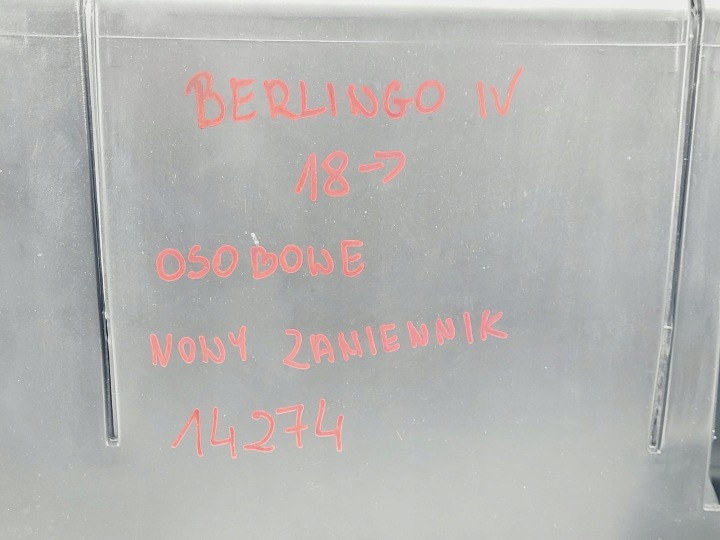 BERLINGO IV
18->
OSOBOWE
NOWY ZAMIENNIK
14274